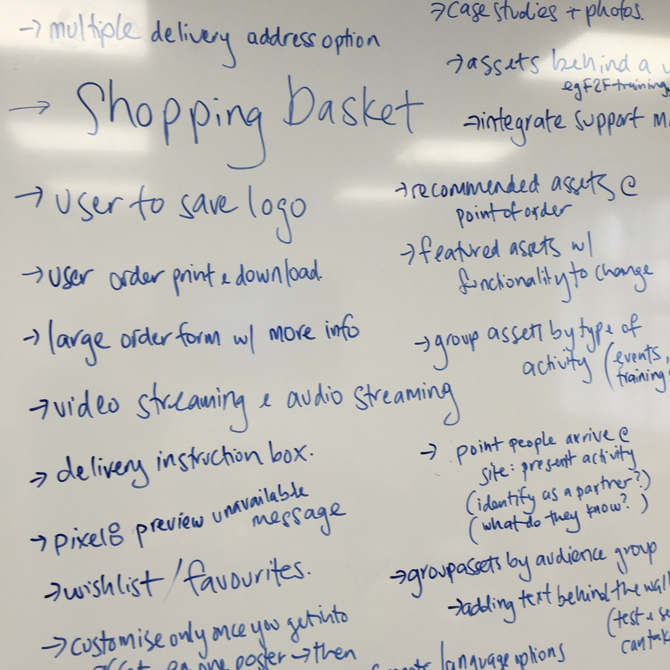 → multiple delivery address option
→ Shopping basket
→ user to save logo
→ user order print & download.
→ large order form w/ more info
→ video streaming & audio streaming
→ delivery instruction box.
→ pixel8 preview unavailable
message
→ wishlist / favourites.
→ customise only once you get into
on one poster → then
→ case studies + photos.
→ assets behind a
eg F2F training
→ integrate support
→ recommended assets @
point of order
→ featured assets w/
functionality to change
→ group assets by type of
activity (events,
training
→ point people arrive @
site: present activity
(identify as a partner?)
(what do they know?)
→ group assets by audience group
→ adding text behind the wall
(test &
can
language options